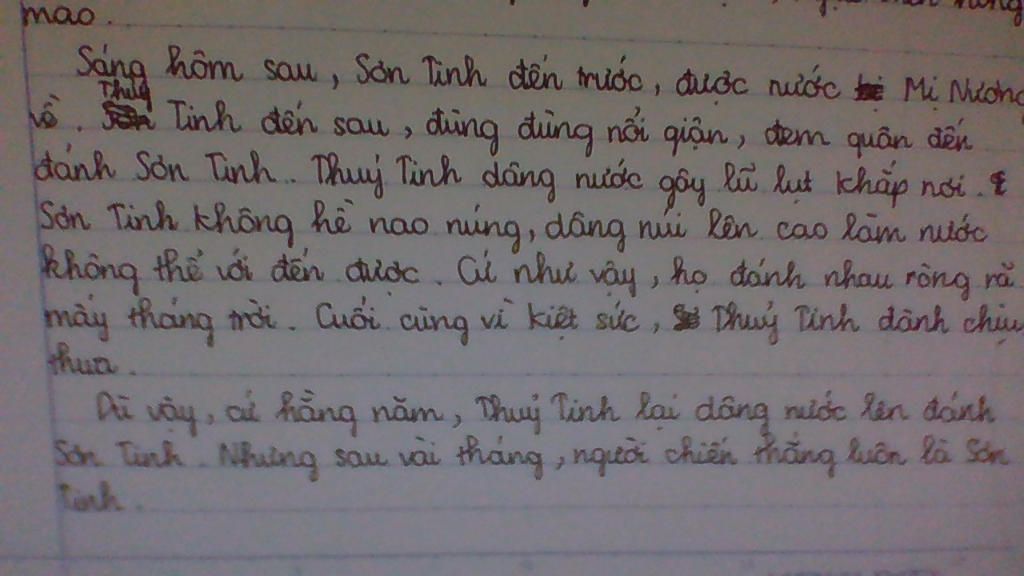 mao.
Sáng hôm sau, Sơn Tinh đến trước, được rước Mị Nương
về. Thuỷ Tinh đến sau, đùng đùng nổi giận, đem quân đến
đánh Sơn Tinh. Thuỷ Tinh dâng nước gây lũ lụt khắp nơi.
Sơn Tinh không hề nao núng, dâng núi lên cao làm nước
không thể với đến được. Cứ như vậy, họ đánh nhau ròng rã
mấy tháng trời. Cuối cùng vì kiệt sức, Thuỷ Tinh đành chịu
thua.
Dù vậy, cứ hằng năm, Thuỷ Tinh lại dâng nước lên đánh
Sơn Tinh. Nhưng sau vài tháng, người chiến thắng luôn là Sơn
Tinh.